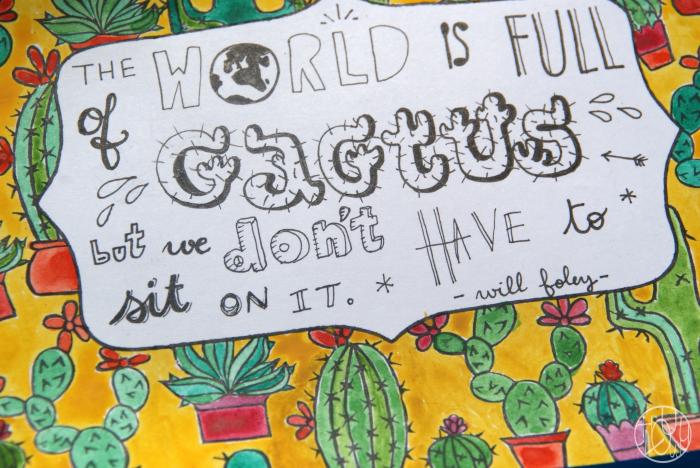 THE WORLD IS FULL
of cactus
but we don't HAVE to
sit ON IT. *
- will foley -